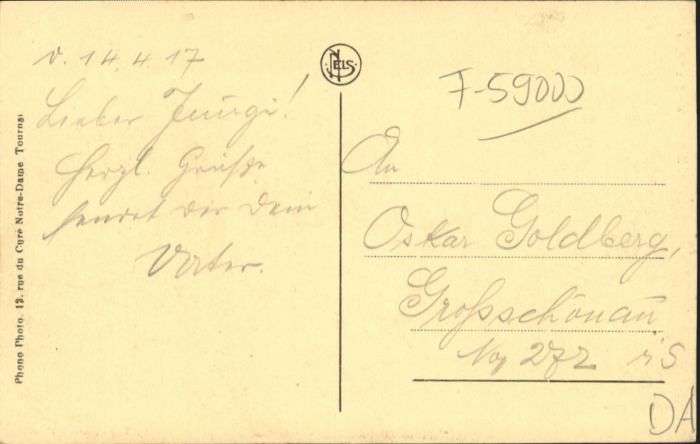 v. 14.4.17
Lieber Jungi!
Herzl. Grüße
sendet dir dein
Vater.
NELS
F-59000
An
Oskar Goldberg,
Großschönau
No 272 i/S
DA
Phono Photo. 13. rue du Curé Notre-Dame Tournai